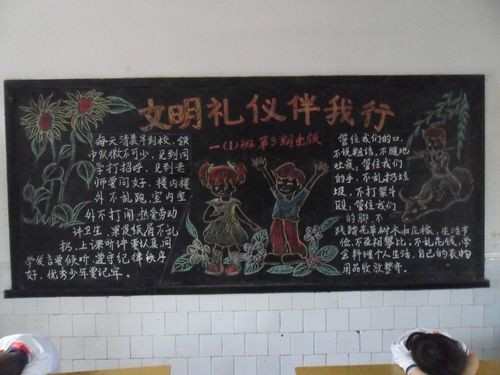 文明礼仪伴我行
一(1)班第5期出版
每天清晨早到校，锻
巾佩做不可少，见到同
学打招呼，见到老
师要问好，楼内楼
外不乱跑，室内室
外不打闹，热爱劳动
讲卫生，果皮纸屑不乱
扔，上课听讲要认真，同
学发言要倾听，遵守纪律秩序
好，优秀少年要记牢。
管住我们的口，
不说粗话，不随地
吐痰，管住我们
的手，不乱扔垃
圾，不打架斗
殴，管住我们
的脚，不
践踏花草树木和花坛，生活节
俭，不要相攀比，不乱花钱，学
会料理个人生活，自己的衣物
用品收放整齐。